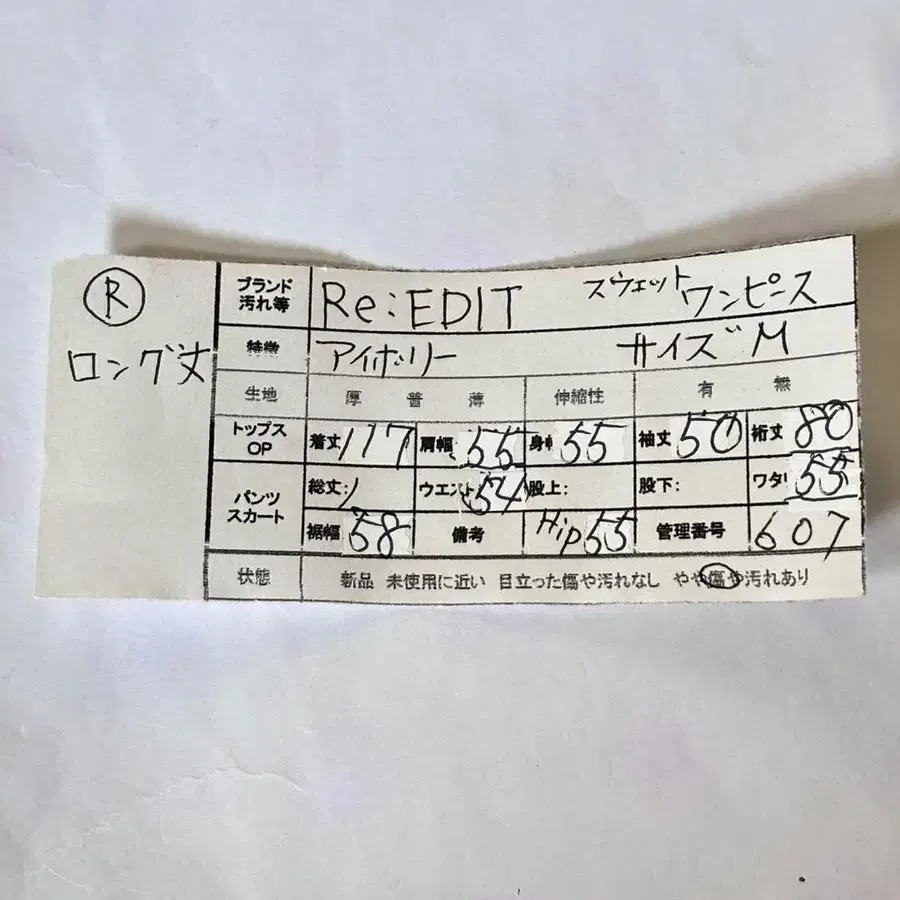 R
ロング丈
ブランド 汚れ等 Re:EDIT スウェットワンピース
特徴 アイボリー サイズM
生地 厚 普 薄 伸縮性 有 無
トップス OP 着丈 117 肩幅 55 身幅 55 袖丈 50 裄丈 80
パンツ スカート 総丈: ウエスト 54 股上: 股下: ワタリ 55
裾幅 58 備考 Hip55 管理番号 607
状態 新品 未使用に近い 目立った傷や汚れなし やや傷や汚れあり